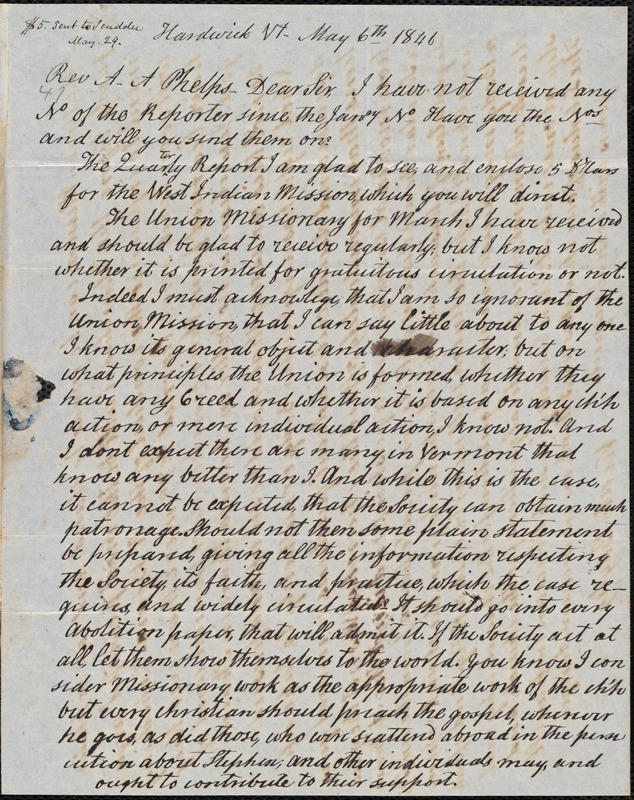 $5. Sent to Scudder
May. 29.
Hardwick Vt. May 6th 1846
47
Rev A. A Phelps Dear Sir I have not reicived any
No of the Reporter since the Jany No Have you the Nos
and will you send them on?
The Quarterly Report I am glad to see, and enclose 5 Dollars
for the West Indian Mission, which you will direct.
The Union Missionary for March I have received
and should be glad to receive regularly; but I know not
whether it is printed for gratuitous circulation or not.
Indeed I must acknowlege, that I am so ignorant of the
Union Mission, that I can say little about to any one
I know its general object and character; but on
what principles the Union is formed, whether they
have any Creed and whether it is based on any ch'h
action, or mere individual action, I know not. And
I dont expect there are many in Vermont that
know any better than I. And while this is the case,
it cannot be expected, that the Society can obtain much
patronage. Should not then some plain statement
be prepared, giving all the information respecting
the Society, its faith, and practice, which the case re-
quires, and widely circulated? It should go into every
abolition paper, that will admit it. If the Society act at
all let them show themselves to the world. You know I con
sider Missionary work as the appropriate work of the ch'h
but every christian should preach the gospel, wherever
he goes, as did those, who were scattered abroad in the perse
cution about Stephen; and other individuals may, and
ought to contribute to their support.